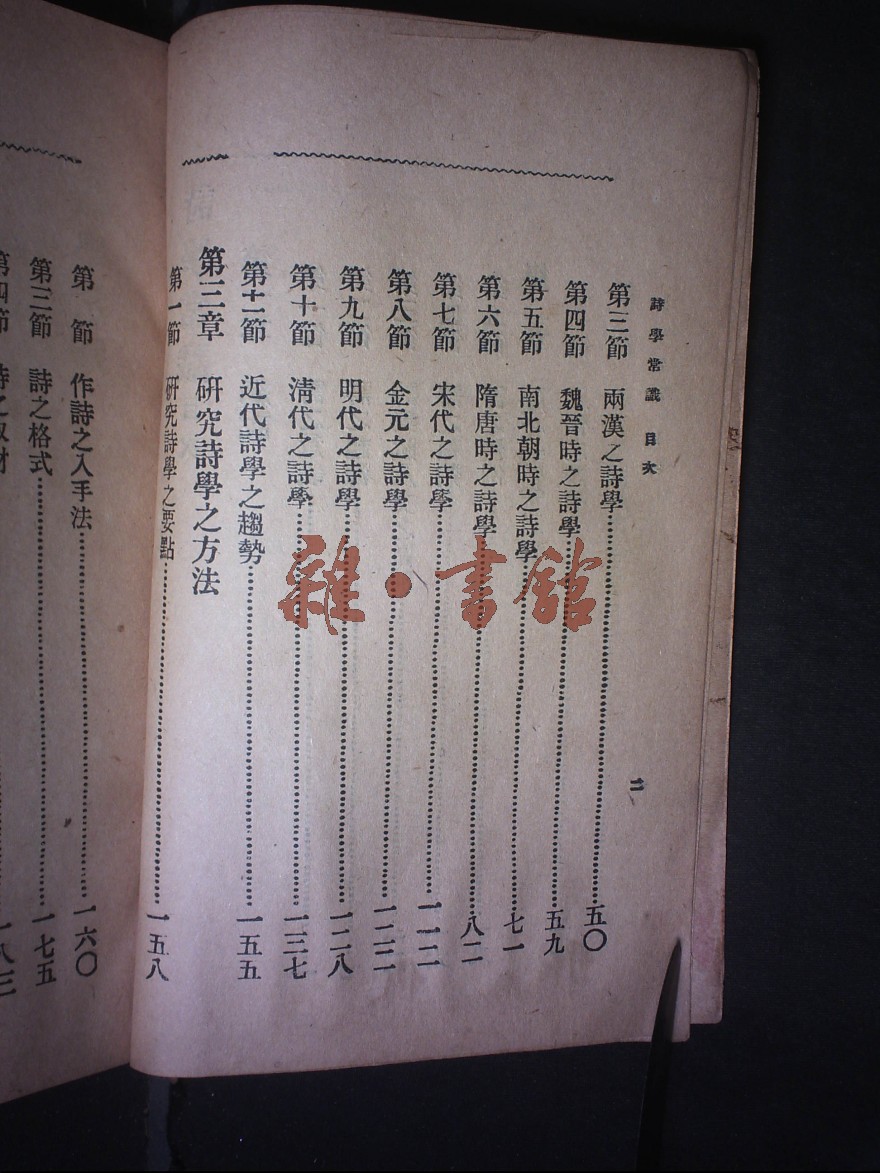 詩學常識 目次
二
第三節 兩漢之詩學 五〇
第四節 魏晉時之詩學 五九
第五節 南北朝時之詩學 七一
第六節 隋唐時之詩學 八二
第七節 宋代之詩學 一一二
第八節 金元之詩學 一二二
第九節 明代之詩學 一二八
第十節 清代之詩學 一三七
第十一節 近代詩學之趨勢 一五五
第三章 研究詩學之方法
第一節 研究詩學之要點 一五八
第 節 作詩之入手法 一六〇
第三節 詩之格式 一七五
第四節 詩之取材 一八三
雜·書館